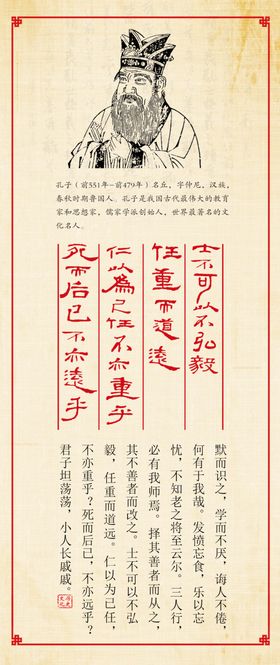 孔子（前551年-前479年）名丘，字仲尼，汉族，
春秋时期鲁国人。孔子是我国古代最伟大的教育
家和思想家，儒家学派创始人，世界最著名的文
化名人。
士不可以不弘毅
任重而道远
仁以為己任不亦重乎
死而后已不亦遠乎
默而识之，学而不厌，诲人不倦，
何有于我哉。发愤忘食，乐以忘
忧，不知老之将至云尔。三人行，
必有我师焉。择其善者而从之，
其不善者而改之。士不可以不弘
毅，任重而道远。仁以为己任，
不亦重乎？死而后已，不亦远乎？
君子坦荡荡，小人长戚戚。